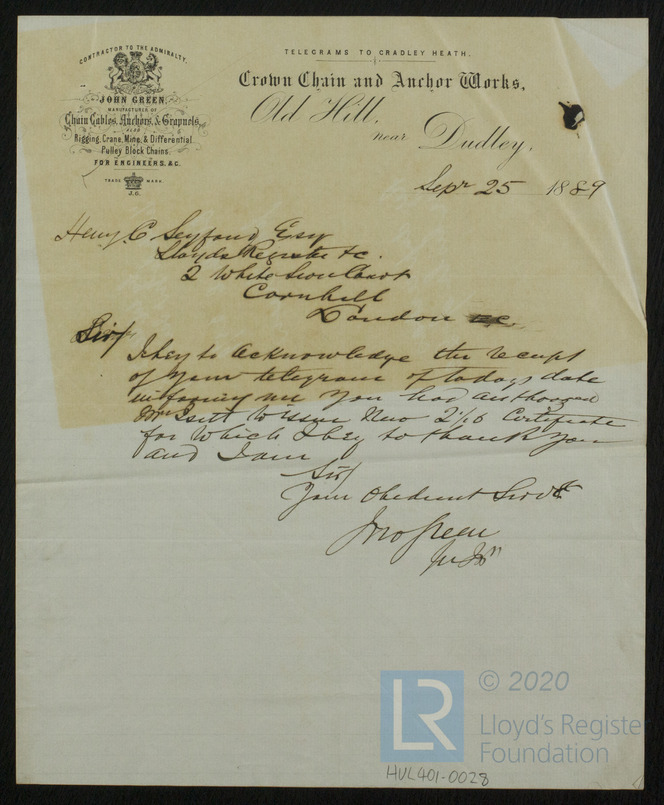 TELEGRAMS TO CRADLEY HEATH.
CONTRACTOR TO THE ADMIRALTY.
JOHN GREEN,
MANUFACTURER OF
Chain Cables, Anchors, & Grapnels,
ALSO
Rigging, Crane, Mine, & Differential
Pulley Block Chains
FOR ENGINEERS, &C.
TRADE MARK.
J.G.
Crown Chain and Anchor Works,
Old Hill,
near Dudley,
Sepr 25 1889
Henry C Seyfang Esq
Lloyds Register &c.
2 White Lion Court
Cornhill
London EC
Sir/
I beg to acknowledge the receipt
of your telegram of todays date
informing me you had authorized
Mr to issue New Certificate
for which I beg to thank you
and I am
Sir/
Your Obedient Servt
Jno Green
© 2020
LR
Lloyd's Register
Foundation
HUL401-0028